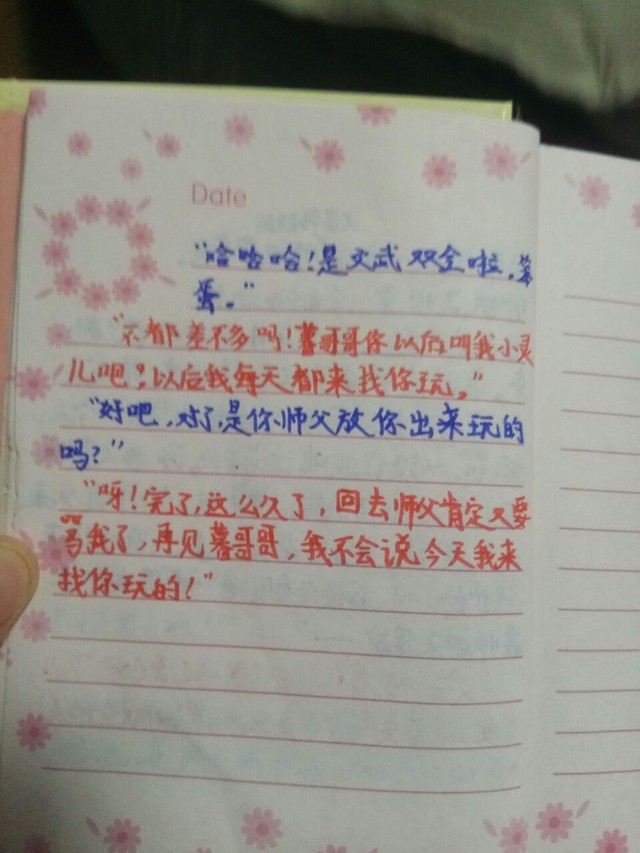 Date
“哈哈哈！是文武双全啦，笨
蛋。”
“不都差不多吗！暮哥哥你以后叫我小灵
儿吧？以后我每天都来找你玩。”
“好吧，对了，是你师父放你出来玩的
吗？”
“呀！完了，这么久了，回去师父肯定又要
骂我了，再见暮哥哥，我不会说今天我来
找你玩的！”